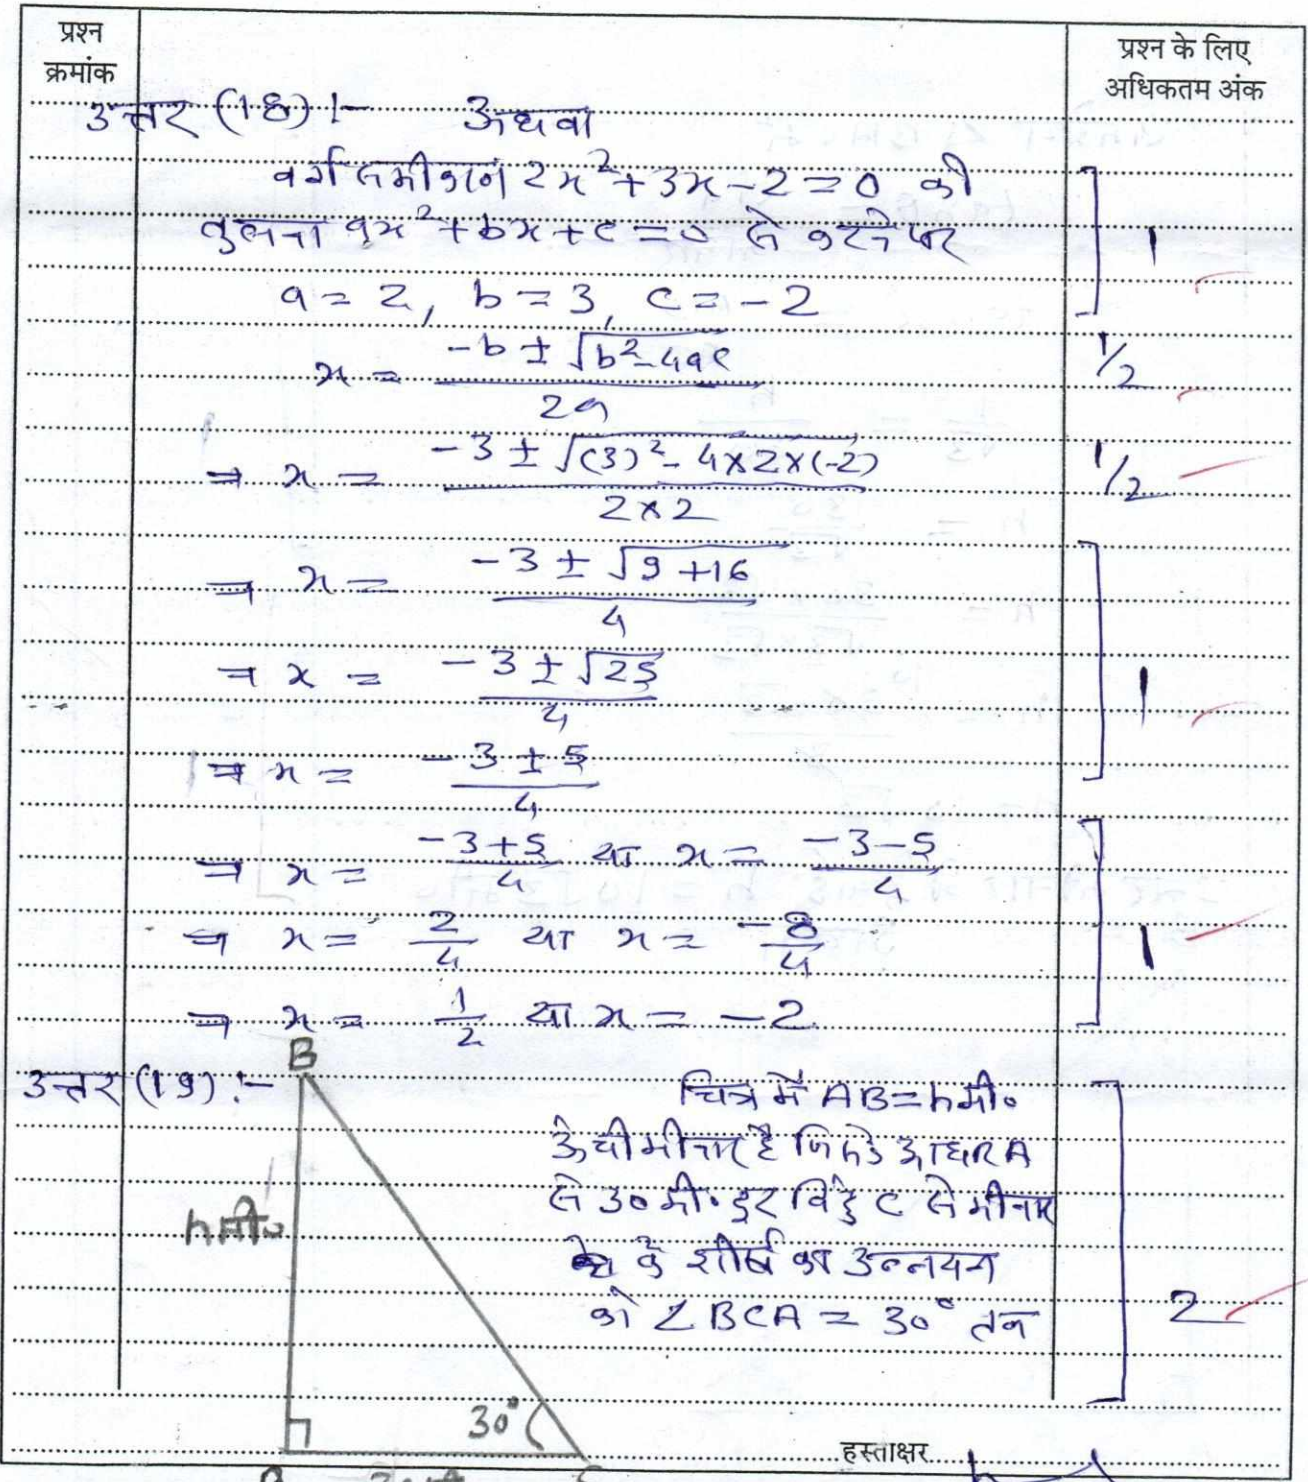 प्रश्न क्रमांक
प्रश्न के लिए अधिकतम अंक
उत्तर (18) :- अथवा
वर्ग समीकरण 2x² + 3x - 2 = 0 की
तुलना ax² + bx + c = 0 से करने पर
1
a = 2, b = 3, c = -2
x = (-b ± √(b² - 4ac)) / 2a
1/2
⇒ x = (-3 ± √((3)² - 4×2×(-2))) / (2×2)
1/2
⇒ x = (-3 ± √(9 + 16)) / 4
⇒ x = (-3 ± √25) / 4
1
⇒ x = (-3 ± 5) / 4
⇒ x = (-3+5)/4 या x = (-3-5)/4
⇒ x = 2/4 या x = -8/4
1
⇒ x = 1/2 या x = -2
उत्तर (19) :-
B
चित्र में AB = h मी०
ऊँची मीनार है जिसके आधार A
से 30 मी० दूर बिंदु C से मीनार
h मी०
के शीर्ष का उन्नयन
को ∠BCA = 30° तक
2
30°
हस्ताक्षर